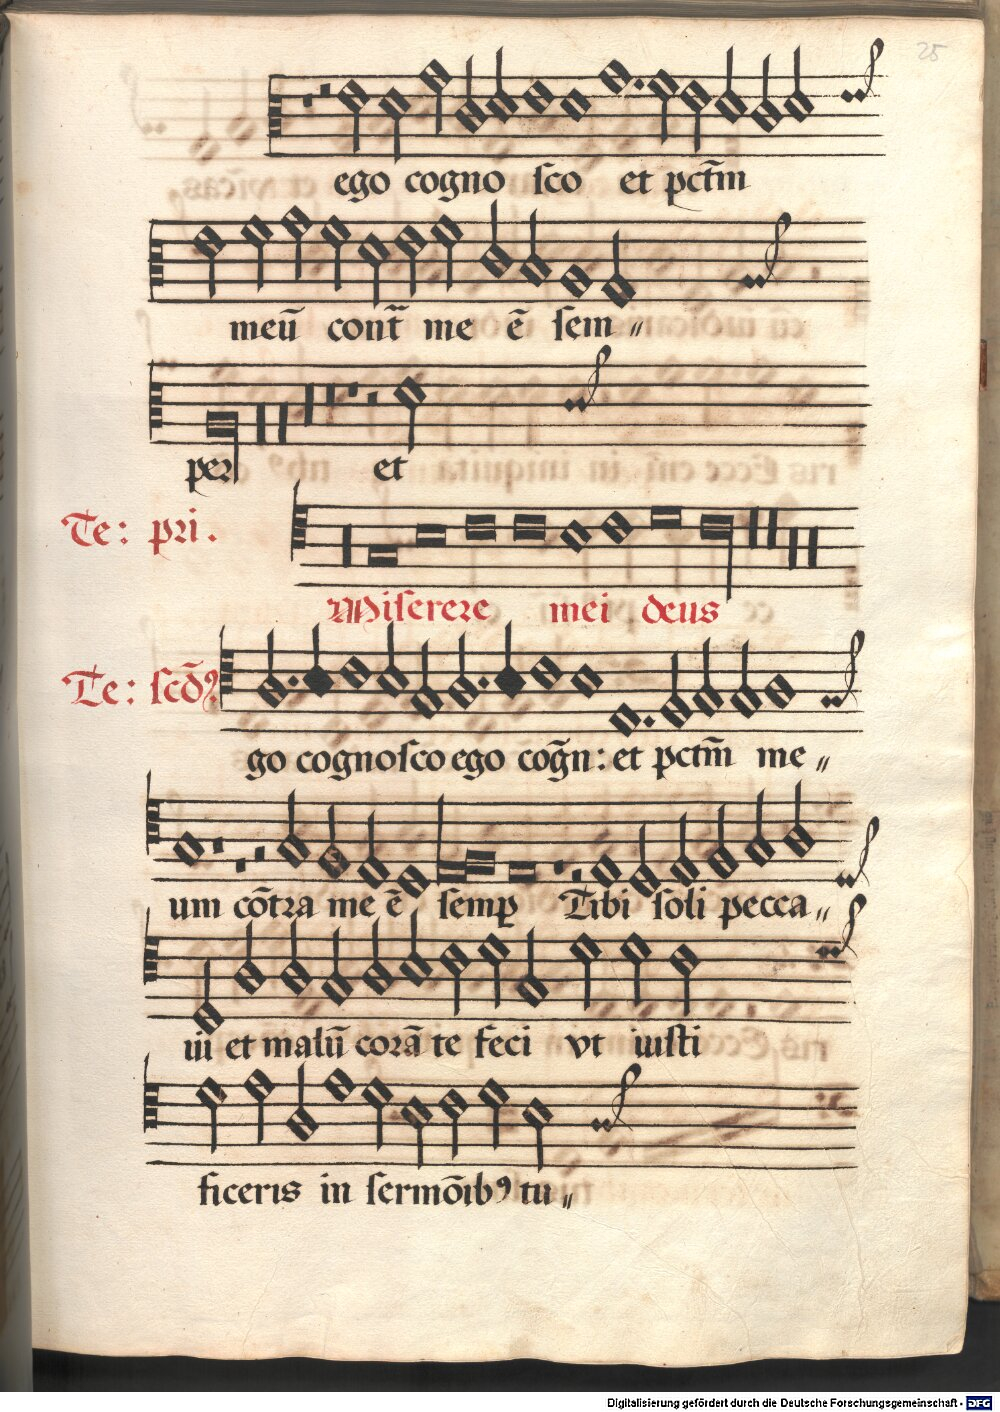 25
ego cogno sco et pctm̄
meū cont̄ me ē sem〃
per et
Te: pri.
Miserere mei deus
Te: scd̄ꝯ
go cognosco ego cogn̄: et pctm̄ me〃
um cōtra me ē semꝑ Tibi soli pecca〃
ui et malū corā te feci vt iusti
ficeris in sermōibꝰ tu〃
Digitalisierung gefördert durch die Deutsche Forschungsgemeinschaft - DFG